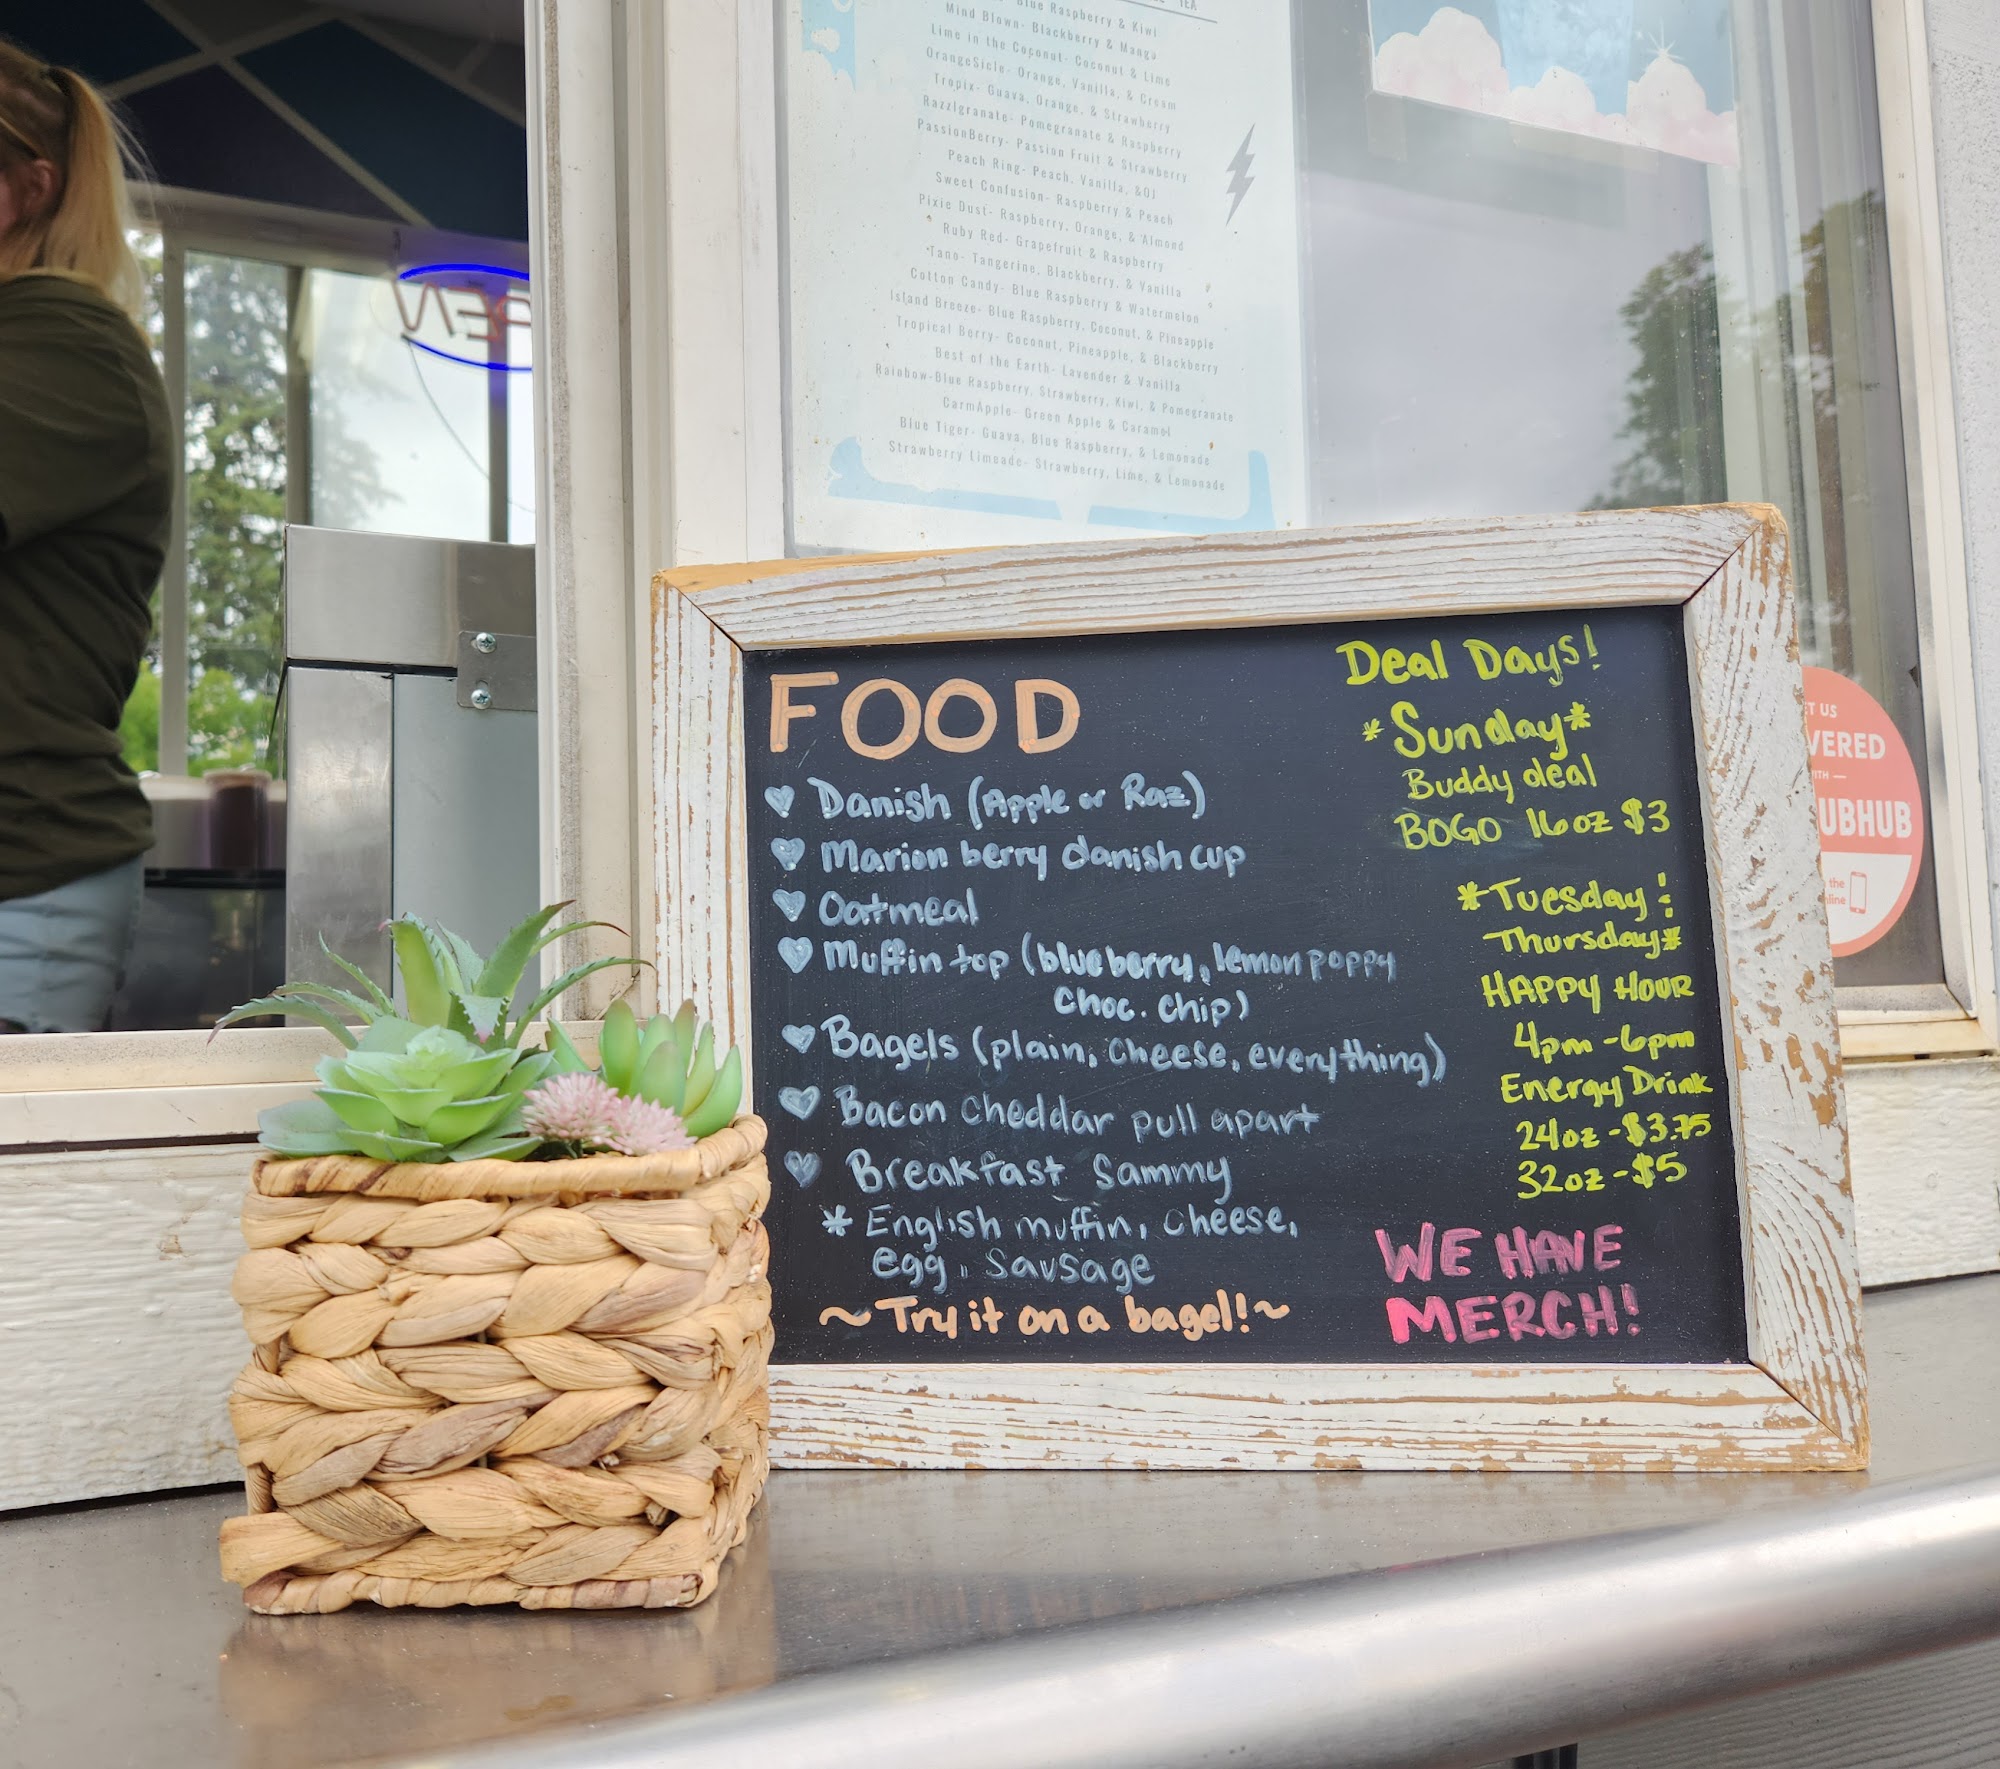 TEA
Blue Raspberry & Kiwi
Mind Blown- Blackberry & Mango
Lime in the Coconut- Coconut & Lime
OrangeSicle- Orange, Vanilla, & Cream
Tropix- Guava, Orange, & Strawberry
Razzlgranate- Pomegranate & Raspberry
PassionBerry- Passion Fruit & Strawberry
Peach Ring- Peach, Vanilla, &OJ
Sweet Confusion- Raspberry & Peach
Pixie Dust- Raspberry, Orange, & Almond
Ruby Red- Grapefruit & Raspberry
Tano- Tangerine, Blackberry, & Vanilla
Cotton Candy- Blue Raspberry & Watermelon
Island Breeze- Blue Raspberry, Coconut, & Pineapple
Tropical Berry- Coconut, Pineapple, & Blackberry
Best of the Earth- Lavender & Vanilla
Rainbow-Blue Raspberry, Strawberry, Kiwi, & Pomegranate
CarmApple- Green Apple & Caramel
Blue Tiger- Guava, Blue Raspberry, & Lemonade
Strawberry Limeade- Strawberry, Lime, & Lemonade
PEN
FOOD
Danish (Apple or Raz)
Marion berry danish cup
Oatmeal
Muffin top (blueberry, lemon poppy
choc. chip)
Bagels (plain, cheese, everything)
Bacon cheddar pull apart
Breakfast Sammy
* English muffin, cheese,
egg, sausage
~Try it on a bagel!~
Deal Days!
*Sunday*
Buddy deal
BOGO 16oz $3
*Tuesday &
Thursday*
HAPPY HOUR
4pm-6pm
Energy Drink
24oz-$3.75
32oz-$5
WE HAVE
MERCH!
ET US
VERED
ITH
UBHUB
the
nline